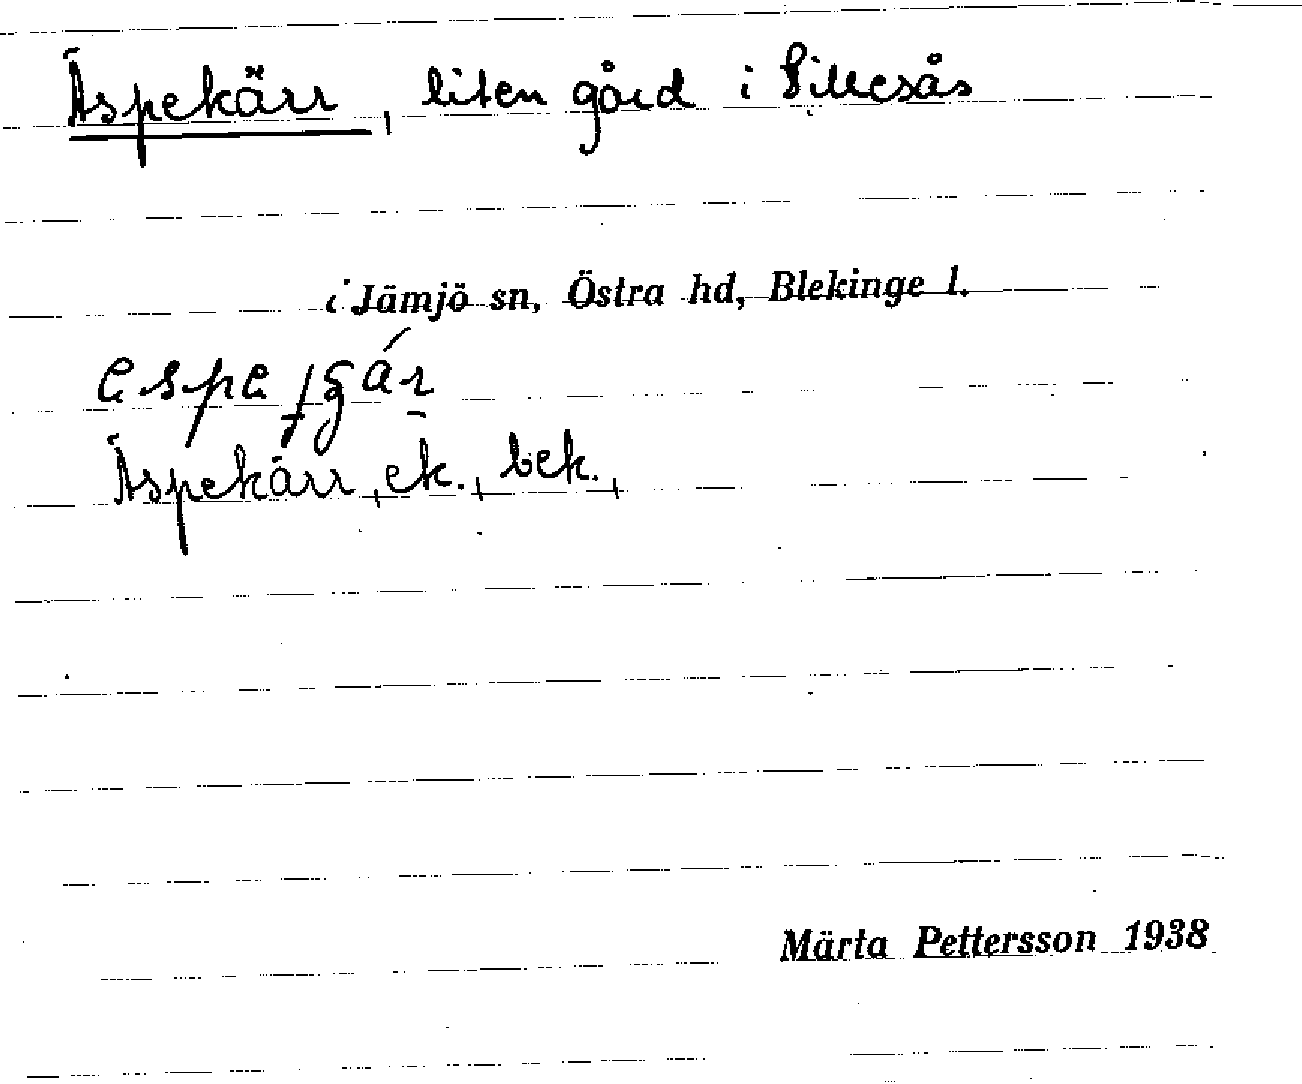 Äspekärr, liten gård i Sillesås
i Jämjö sn, Östra hd, Blekinge l.
Äspekärr, ek., bek.,
Märta Pettersson 1938